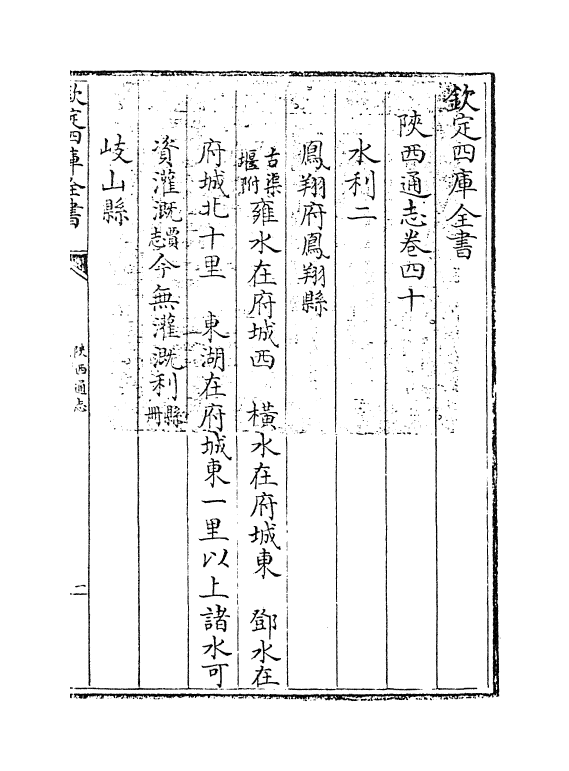 欽定四庫全書
陜西通志卷四十
水利二
鳳翔府鳳翔縣
古渠堰附雍水在府城西　橫水在府城東　鄧水在
府城北十里　東湖在府城東一里以上諸水可
資灌溉賈志今無灌溉利縣冊
岐山縣
欽定四庫全書
陜西通志
二